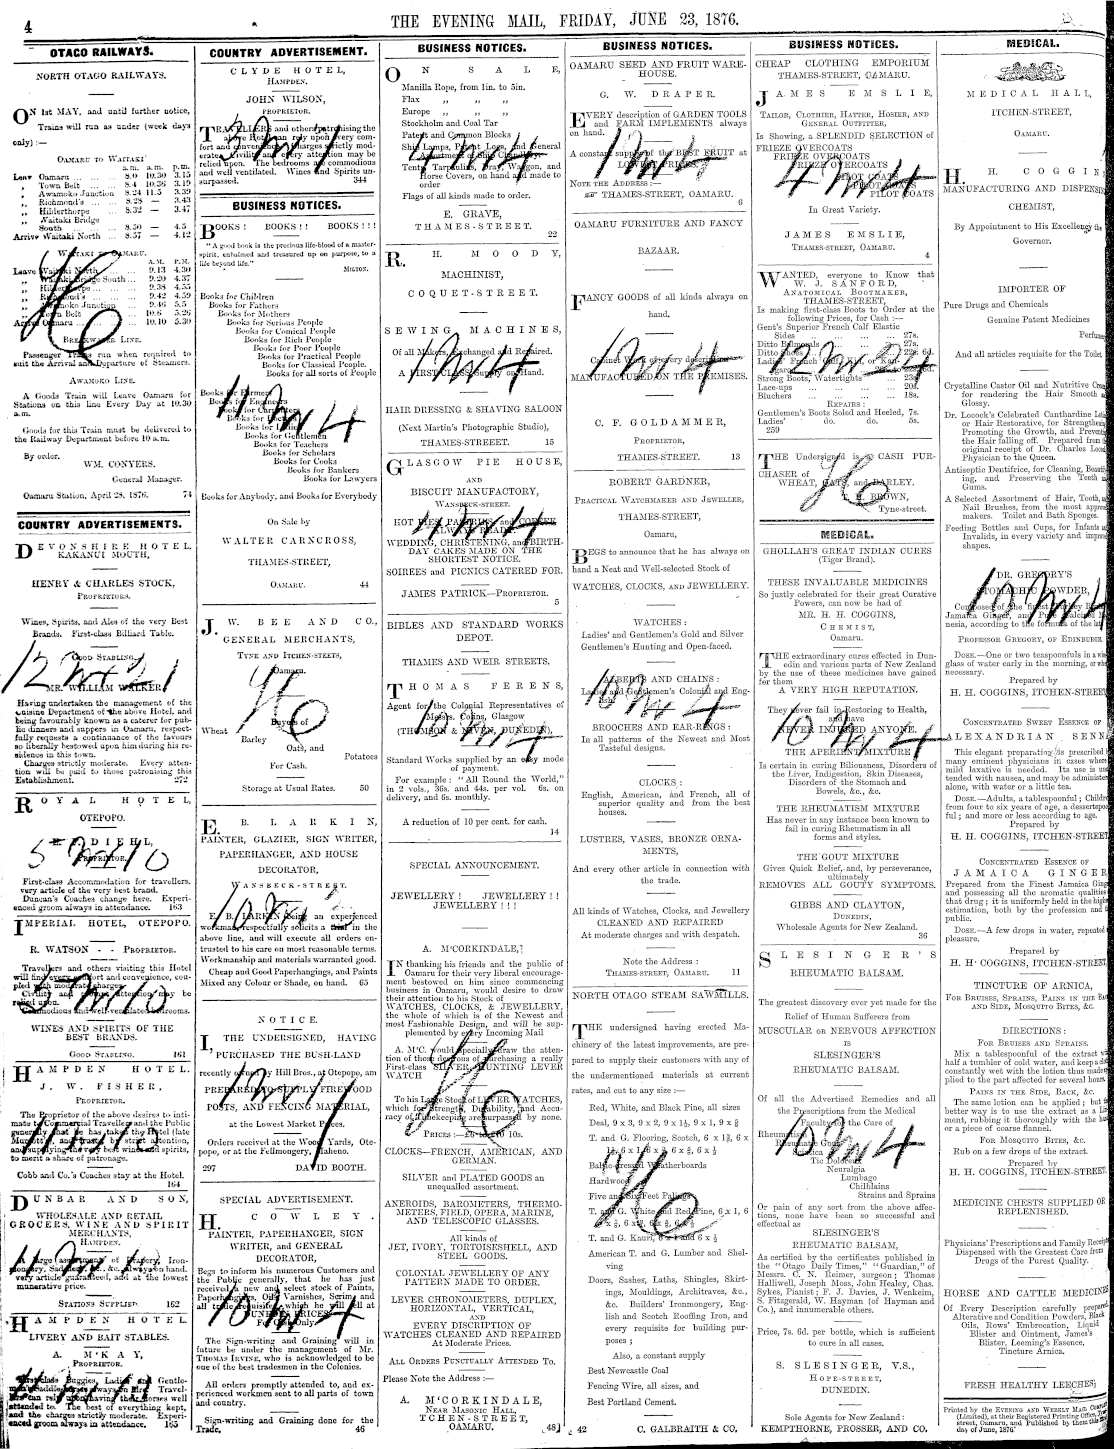 4
THE EVENING MAIL, FRIDAY, JUNE 23, 1876.
OTAGO RAILWAYS.
NORTH OTAGO RAILWAYS.
ON 1st MAY, and until further notice,
Trains will run as under (week days
only) :—
OAMARU TO WAITAKI
a.m. a.m. p.m.
Leave Oamaru ... ... 8.0 10.30 3.15
„ Town Belt ... 8.4 10.36 3.19
„ Awamoko Junction 8.24 11.5 3.39
„ Richmond's ... ... 8.28 — 3.43
„ Hilderthorpe ... 8.32 — 3.47
„ Waitaki Bridge
South ... ... 8.50 — 4.5
Arrive Waitaki North ... 8.57 — 4.12
WAITAKI TO OAMARU.
A.M. P.M.
Leave Waitaki North ... ... 9.13 4.30
„ Waitaki Bridge South ... 9.20 4.37
„ Hilderthorpe ... ... 9.38 4.55
„ Richmond's ... ... 9.42 4.59
„ Awamoko Junction ... 9.46 5.5
„ Town Belt ... ... 10.6 5.26
Arrive Oamaru ... ... 10.10 5.30
BREAKWATER LINE.
Passenger Trains run when required to
suit the Arrival and Departure of Steamers.
AWAMOKO LINE.
A Goods Train will Leave Oamaru for
Stations on this line Every Day at 10.30
a.m.
Goods for this Train must be delivered to
the Railway Department before 10 a.m.
By order.
WM. CONYERS.
General Manager.
Oamaru Station, April 28, 1876. 74
COUNTRY ADVERTISEMENTS.
DEVONSHIRE HOTEL,
KAKANUI MOUTH,
HENRY & CHARLES STOCK,
PROPRIETORS.
Wines, Spirits, and Ales of the very Best
Brands. First-class Billiard Table.
GOOD STABLING.
MR. WILLIAM WALKER
Having undertaken the management of the
Cuisine Department of the above Hotel, and
being favourably known as a caterer for pub-
lic dinners and suppers in Oamaru, respect-
fully requests a continuance of the favours
so liberally bestowed upon him during his re-
sidence in this town.
Charges strictly moderate. Every atten-
tion will be paid to those patronising this
Establishment. 272
ROYAL HOTEL,
OTEPOPO.
DIEHL,
PROPRIETOR.
First-class Accommodation for travellers.
very article of the very best brand.
Duncan's Coaches change here. Experi-
enced groom always in attendance. 163
IMPERIAL HOTEL, OTEPOPO.
R. WATSON - - PROPRIETOR.
Travellers and others visiting this Hotel
will find every comfort and convenience, cou-
pled with moderate charges.
Civility and attention may be
relied upon.
Commodious and well-ventilated bedrooms.
WINES AND SPIRITS OF THE
BEST BRANDS.
GOOD STABLING. 161
HAMPDEN HOTEL.
J. W. FISHER,
PROPRIETOR.
The Proprietor of the above desires to inti-
mate to Commercial Travellers and the Public
generally, that he has taken the Hotel (late
and trusts by strict attention,
and supplying the very best wines and spirits,
to merit a share of patronage.
Cobb and Co.'s Coaches stay at the Hotel.
164
DUNBAR AND SON,
WHOLESALE AND RETAIL
GROCERS, WINE AND SPIRIT
MERCHANTS,
HAMPDEN.
A large assortment of Drapery, Iron-
mongery, &c., always on hand.
very article guaranteed, and at the lowest
munerative price.
STATIONS SUPPLIED 162
HAMPDEN HOTEL
LIVERY AND BAIT STABLES.
A. M'KAY,
PROPRIETOR.
First-class Buggies, Ladies' and Gentle-
men's Saddle Horses always on Hire. Travel-
lers can rely upon having their horses well
attended to. The best of everything kept,
and the charges strictly moderate. Experi-
enced groom always in attendance. 165
COUNTRY ADVERTISEMENT.
CLYDE HOTEL,
HAMPDEN.
JOHN WILSON,
PROPRIETOR.
TRAVELLERS and others patronising the
above Hotel can rely upon every com-
fort and convenience. Charges strictly mod-
erate. Civility and every attention may be
relied upon. The bedrooms are commodious
and well ventilated. Wines and Spirits un-
surpassed. 344
BUSINESS NOTICES.
BOOKS ! BOOKS !! BOOKS !!!
"A good book is the precious life-blood of a master-
spirit, embalmed and treasured up on purpose, to a
life beyond life."
MILTON.
Books for Children
Books for Fathers
Books for Mothers
Books for Serious People
Books for Comical People
Books for Rich People
Books for Poor People
Books for Practical People
Books for Classical People.
Books for all sorts of People
Books for Farmers
Books for Engineers
Books for Carpenters
Books for
Books for
Books for Gentlemen
Books for Teachers
Books for Scholars
Books for Cooks
Books for Bankers
Books for Lawyers
Books for Anybody, and Books for Everybody
On Sale by
WALTER CARNCROSS,
THAMES-STREET,
OAMARU. 44
J. W. BEE AND CO.,
GENERAL MERCHANTS,
TYNE AND ITCHEN-STEETS,
Oamaru.
Buyers of
Wheat
Barley
Oats, and
Potatoes
For Cash.
Storage at Usual Rates. 50
E. B. LARKIN,
PAINTER, GLAZIER, SIGN WRITER,
PAPERHANGER, AND HOUSE
DECORATOR,
WANSBECK-STREET.
E. B. LARKIN being an experienced
workman, respectfully solicits a trial in the
above line, and will execute all orders en-
trusted to his care on most reasonable terms.
Workmanship and materials warranted good.
Cheap and Good Paperhangings, and Paints
Mixed any Colour or Shade, on hand. 65
NOTICE.
I, THE UNDERSIGNED, HAVING
PURCHASED THE BUSH-LAND
recently owned by Hill Bros., at Otepopo, am
PREPARED TO SUPPLY FIREWOOD
POSTS, AND FENCING MATERIAL,
at the Lowest Market Prices.
Orders received at the Wood Yards, Ote-
popo, or at the Fellmongery, Maheno.
297 DAVID BOOTH.
SPECIAL ADVERTISEMENT.
H. COWLEY.
PAINTER, PAPERHANGER, SIGN
WRITER, and GENERAL
DECORATOR,
Begs to inform his numerous Customers and
the Public generally, that he has just
received a new and select stock of Paints,
Paperhangings, Oils, Varnishes, Scrim, and
all trade requisites, which he will sell at
DUNEDIN PRICES
For Cash Only.
The Sign-writing and Graining will in
future be under the management of Mr.
THOMAS IRVINE, who is acknowledged to be
one of the best tradesmen in the Colonies.
All orders promptly attended to, and ex-
perienced workmen sent to all parts of town
and country.
Sign-writing and Graining done for the
Trade. 46
BUSINESS NOTICES.
ON SALE,
Manilla Rope, from 1in. to 5in.
Flax „ „ „
Europe „ „ „
Stockholm and Coal Tar
Patent and Common Blocks
Ship Lamps, Patent Logs, and General
Assortment of Ship Chandlery
Tents, Tarpaulins, Dray, Waggon, and
Horse Covers, on hand and made to
order
Flags of all kinds made to order.
E. GRAVE,
THAMES-STREET.
22
R. H. MOODY,
MACHINIST,
COQUET-STREET.
SEWING MACHINES,
Of all Makers, Exchanged and Repaired.
A FIRST-CLASS Supply on Hand.
HAIR DRESSING & SHAVING SALOON
(Next Martin's Photographic Studio),
THAMES-STREEET. 15
GLASGOW PIE HOUSE,
AND
BISCUIT MANUFACTORY,
WANSBECK-STREET.
HOT PIES, PASTRIES, and COFFEE
ALWAYS READY.
WEDDING, CHRISTENING, and BIRTH-
DAY CAKES MADE ON THE
SHORTEST NOTICE.
SOIREES and PICNICS CATERED FOR.
JAMES PATRICK—PROPRIETOR.
5
BIBLES AND STANDARD WORKS
DEPOT.
THAMES AND WEIR STREETS.
THOMAS FERENS,
Agent for the Colonial Representatives of
Messrs. Collins, Glasgow
(THOMSON & NIVEN, DUNEDIN),
Standard Works supplied by an easy mode
of payment.
For example : "All Round the World,"
in 2 vols., 36s. and 44s. per vol. 6s. on
delivery, and 6s. monthly.
A reduction of 10 per cent. for cash.
14
SPECIAL ANNOUNCEMENT.
JEWELLERY ! JEWELLERY !!
JEWELLERY !!!
A. M'CORKINDALE,
IN thanking his friends and the public of
Oamaru for their very liberal encourage-
ment bestowed on him since commencing
business in Oamaru, would desire to draw
their attention to his Stock of
WATCHES, CLOCKS, & JEWELLERY,
the whole of which is of the Newest and
most Fashionable Design, and will be sup-
plemented by every Incoming Mail
A. M'C. would specially draw the atten-
tion of those desirous of purchasing a really
First-class SILVER HUNTING LEVER
WATCH
To his Large Stock of LEVER WATCHES,
which for Strength, Durability, and Accu-
racy of Timekeeping are surpassed by none.
PRICES :—£6 to £10 10s.
CLOCKS—FRENCH, AMERICAN, AND
GERMAN.
SILVER and PLATED GOODS an
unequalled assortment.
ANEROIDS, BAROMETERS, THERMO-
METERS, FIELD, OPERA, MARINE,
AND TELESCOPIC GLASSES.
All kinds of
JET, IVORY, TORTOISESHELL, AND
STEEL GOODS.
COLONIAL JEWELLERY OF ANY
PATTERN MADE TO ORDER.
LEVER CHRONOMETERS, DUPLEX,
HORIZONTAL, VERTICAL,
AND
EVERY DISCRIPTION OF
WATCHES CLEANED AND REPAIRED
At Moderate Prices.
ALL ORDERS PUNCTUALLY ATTENDED TO.
Please Note the Address :—
A. M'CORKINDALE,
NEAR MASONIC HALL,
TCHEN-STREET,
OAMARU. 48
BUSINESS NOTICES.
OAMARU SEED AND FRUIT WARE-
HOUSE.
G. W. DRAPER.
EVERY description of GARDEN TOOLS
and FARM IMPLEMENTS always
on hand.
A constant supply of the BEST FRUIT at
LOWEST PRICES.
NOTE THE ADDRESS :—
THAMES-STREET, OAMARU.
6
OAMARU FURNITURE AND FANCY
BAZAAR.
FANCY GOODS of all kinds always on
hand.
Cabinet Work of every description
MANUFACTURED ON THE PREMISES.
C. F. GOLDAMMER,
PROPRIETOR,
THAMES-STREET. 13
ROBERT GARDNER,
PRACTICAL WATCHMAKER AND JEWELLER,
THAMES-STREET,
Oamaru,
BEGS to announce that he has always on
hand a Neat and Well-selected Stock of
WATCHES, CLOCKS, AND JEWELLERY.
WATCHES :
Ladies' and Gentlemen's Gold and Silver
Gentlemen's Hunting and Open-faced.
ALBERTS AND CHAINS :
Ladies' and Gentlemen's Colonial and Eng-
lish
BROOCHES AND EAR-RINGS :
In all patterns of the Newest and Most
Tasteful designs.
CLOCKS :
English, American, and French, all of
superior quality and from the best
houses.
LUSTRES, VASES, BRONZE ORNA-
MENTS,
And every other article in connection with
the trade.
All kinds of Watches, Clocks, and Jewellery
CLEANED AND REPAIRED
At moderate charges and with despatch.
Note the Address :
THAMES-STREET, OAMARU. 11
NORTH OTAGO STEAM SAWMILLS.
THE undersigned having erected Ma-
chinery of the latest improvements, are pre-
pared to supply their customers with any of
the undermentioned materials at current
rates, and cut to any size :—
Red, White, and Black Pine, all sizes
Deal, 9 x 3, 9 x 2, 9 x 1½, 9 x 1, 9 x ¾
T. and G. Flooring, Scotch, 6 x 1¼, 6 x
Baltic-dressed Weatherboards
Hardwood
Five and Six Feet Palings
T. and G. White and Red Pine, 6 x 1, 6
T. and G. Kauri, 6 x 1 and 6 x ½
American T. and G. Lumber and Shel-
ving
Doors, Sashes, Laths, Shingles, Skirt-
ings, Mouldings, Architraves, &c.,
&c. Builders' Ironmongery, Eng-
lish and Scotch Roofing Iron, and
every requisite for building pur-
poses ;
Also, a constant supply
Best Newcastle Coal
Fencing Wire, all sizes, and
Best Portland Cement.
42 C. GALBRAITH & CO.
BUSINESS NOTICES.
CHEAP CLOTHING EMPORIUM
THAMES-STREET, OAMARU.
JAMES EMSLIE,
TAILOR, CLOTHIER, HATTER, HOSIER, AND
GENERAL OUTFITTER,
Is Showing, a SPLENDID SELECTION of
FRIEZE OVERCOATS
FRIEZE OVERCOATS
FRIEZE OVERCOATS
PILOT COATS
PILOT COATS
PILOT COATS
In Great Variety.
JAMES EMSLIE,
THAMES-STREET, OAMARU.
4
WANTED, everyone to Know that
W. J. SANFORD,
ANATOMICAL BOOTMAKER,
THAMES-STREET,
Is making first-class Boots to Order at the
following Prices, for Cash :—
Gent's Superior French Calf Elastic
Sides ... ... ... 27s.
Ditto Balmorals ... ... ... 27s.
Ditto Shoes ... ... ... 22s. 6d.
Strong Boots, Watertights
Lace-ups ... ... ... 20s.
Bluchers ... ... ... 18s.
REPAIRS :
Gentlemen's Boots Soled and Heeled, 7s.
Ladies' do. do. do. 5s.
259
THE Undersigned is a CASH PUR-
CHASER of
WHEAT, OATS, and BARLEY.
H. BROWN,
Tyne-street.
MEDICAL.
GHOLLAH'S GREAT INDIAN CURES
(Tiger Brand).
THESE INVALUABLE MEDICINES
So justly celebrated for their great Curative
Powers, can now be had of
MR. H. H. COGGINS,
CHEMIST,
Oamaru.
THE extraordinary cures effected in Dun-
edin and various parts of New Zealand
by the use of these medicines have gained
for them
A VERY HIGH REPUTATION.
They never fail in Restoring to Health,
and have
NEVER INJURED ANYONE.
THE APERIENT MIXTURE
Is certain in curing Biliousness, Disorders of
the Liver, Indigestion, Skin Diseases,
Disorders of the Stomach and
Bowels, &c., &c.
THE RHEUMATISM MIXTURE
Has never in any instance been known to
fail in curing Rheumatism in all
forms and styles.
THE GOUT MIXTURE
Gives Quick Relief, and, by perseverance,
ultimately
REMOVES ALL GOUTY SYMPTOMS.
GIBBS AND CLAYTON,
DUNEDIN,
Wholesale Agents for New Zealand.
36
SLESINGER'S
RHEUMATIC BALSAM.
The greatest discovery ever yet made for the
Relief of Human Sufferers from
MUSCULAR OR NERVOUS AFFECTION
IS
SLESINGER'S
RHEUMATIC BALSAM.
Of all the Advertised Remedies and all
the Prescriptions from the Medical
Faculty for the Cure of
Rheumatism
Rheumatic Gout
Sciatica
Tic Doloreux
Neuralgia
Lumbago
Chilblains
Strains and Sprains
Or pain of any sort from the above affec-
tions, none have been so successful and
effectual as
SLESINGER'S
RHEUMATIC BALSAM,
As certified by the certificates published in
the "Otago Daily Times," "Guardian," of
Messrs. C. N. Reimer, surgeon ; Thomas
Halliwell, Joseph Moss, John Healey, Chas.
Sykes, Pianist ; F. J. Davies, J. Wenkeim,
S. Fitzgerald, W. Hayman (of Hayman and
Co.), and innumerable others.
Price, 7s. 6d. per bottle, which is sufficient
to cure in all cases.
S. SLESINGER, V.S.,
HOPE-STREET,
DUNEDIN.
Sole Agents for New Zealand :
KEMPTHORNE, PROSSER, AND CO.
MEDICAL.
MEDICAL HALL,
ITCHEN-STREET,
OAMARU.
H. H. COGGIN
MANUFACTURING AND DISPENSING
CHEMIST,
By Appointment to His Excellency the
Governor.
IMPORTER OF
Pure Drugs and Chemicals
Genuine Patent Medicines
Perfume
And all articles requisite for the Toilet,
Crystalline Castor Oil and Nutritive Cream
for rendering the Hair Smooth and
Glossy.
Dr. Locock's Celebrated Cantharidine
or Hair Restorative, for Strengthening
Promoting the Growth, and Preventing
the Hair falling off. Prepared from the
original receipt of Dr. Charles Locock
Physician to the Queen.
Antiseptic Dentifrice, for Cleaning, Beautify-
ing, and Preserving the Teeth and
Gums.
A Selected Assortment of Hair, Tooth, and
Nail Brushes, from the most approved
makers. Toilet and Bath Sponges.
Feeding Bottles and Cups, for Infants and
Invalids, in every variety and improved
shapes.
DR. GREGORY'S
STOMACHIC POWDER,
Composed of the finest Turkey Rhubarb
Jamaica Ginger, and Pure Mag-
nesia, according to the formula of the late
PROFESSOR GREGORY, OF EDINBURGH
DOSE.—One or two teaspoonfuls in a wine
glass of water early in the morning, or when
necessary.
Prepared by
H. H. COGGINS, ITCHEN-STREET
CONCENTRATED SWEET ESSENCE OF
ALEXANDRIAN SENNA
This elegant preparation is prescribed by
many eminent physicians in cases where
mild laxative is needed. Its use is unat-
tended with nausea, and may be administered
alone, with water or a little tea.
DOSE.—Adults, a tablespoonful ; Children
from four to six years of age, a dessertspoon-
ful ; and more or less according to age.
Prepared by
H. H. COGGINS, ITCHEN-STREET
CONCENTRATED ESSENCE OF
JAMAICA GINGER
Prepared from the Finest Jamaica Ginger
and possessing all the aromatic qualities
that drug ; it is uniformly held in the highest
estimation, both by the profession and the
public.
DOSE.—A few drops in water, repeated at
pleasure.
Prepared by
H. H. COGGINS, ITCHEN-STREET
TINCTURE OF ARNICA,
FOR BRUISES, SPRAINS, PAINS IN THE BACK
AND SIDE, MOSQUITO BITES, &C.
DIRECTIONS :
FOR BRUISES AND SPRAINS.
Mix a tablespoonful of the extract with
half a tumbler of cold water, and keep a cloth
constantly wet with the lotion thus made ap-
plied to the part affected for several hours.
PAINS IN THE SIDE, BACK, &C.
The same lotion can be applied ; but the
better way is to use the extract as a Lini-
ment, rubbing it thoroughly with the hand
or a piece of coarse flannel.
FOR MOSQUITO BITES, &C.
Rub on a few drops of the extract.
Prepared by
H. H. COGGINS, ITCHEN-STREET.
MEDICINE CHESTS SUPPLIED OR
REPLENISHED.
Physicians' Prescriptions and Family Receipts
Dispensed with the Greatest Care from
Drugs of the Purest Quality.
HORSE AND CATTLE MEDICINES
Of Every Description carefully prepared
Alterative and Condition Powders, Black
Oils, Rows' Embrocation, Liquid
Blister and Ointment, James's
Blister, Leeming's Essence,
Tincture Arnica.
FRESH HEALTHY LEECHES;
Printed by the EVENING AND WEEKLY MAIL COMPANY
(Limited), at their Registered Printing Office,
street, Oamaru, and Published by them this
day of June, 1876